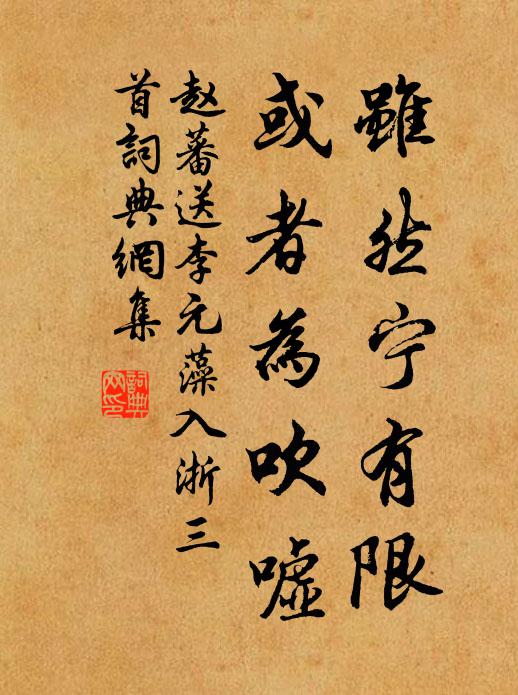 雖然宁有限
或者為吹噓
赵蕃送李元藻入浙三
首詞典網集
詞典
网印